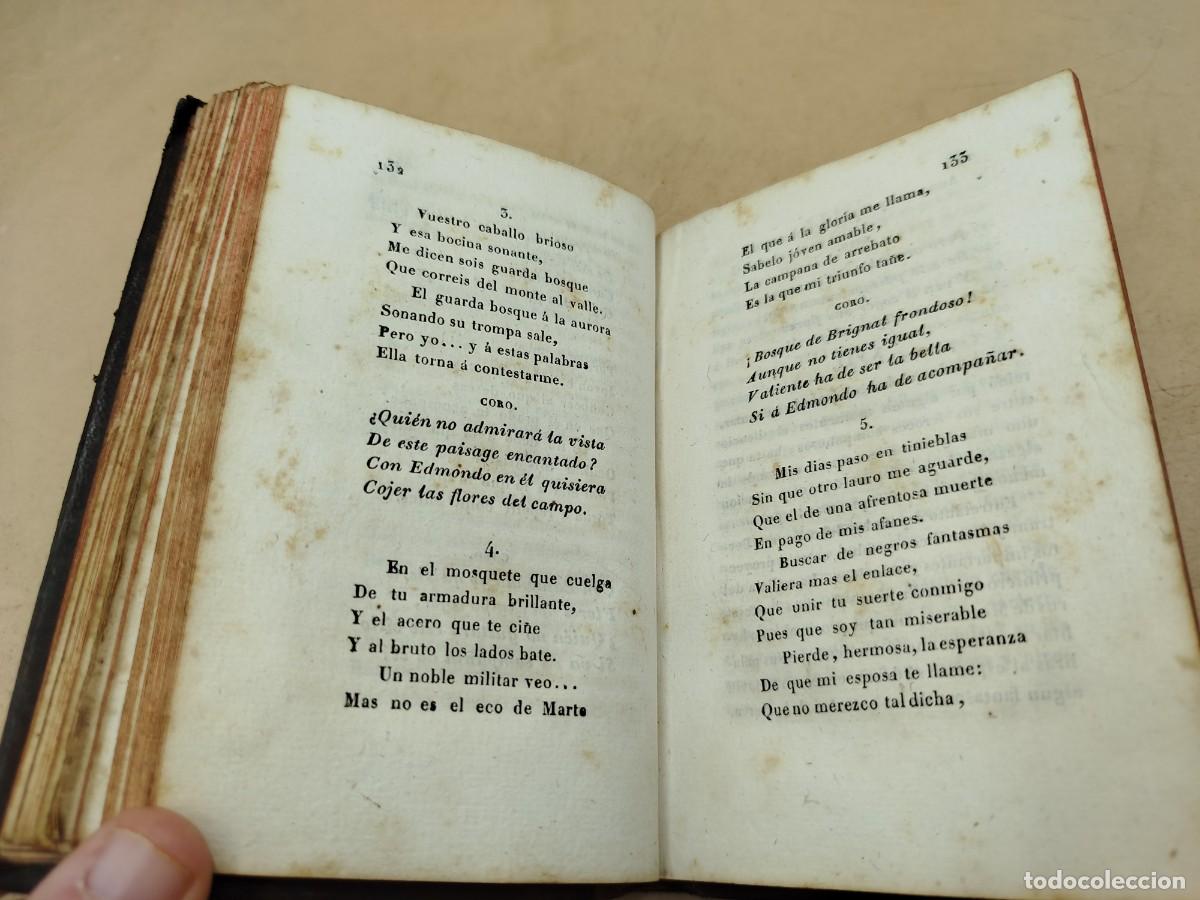 132
3.
Vuestro caballo brioso
Y esa bocina sonante,
Me dicen sois guarda bosque
Que correis del monte al valle.
El guarda bosque á la aurora
Sonando su trompa sale,
Pero yo... y á estas palabras
Ella torna á contestarme.
CORO.
¿Quién no admirará la vista
De este paisage encantado?
Con Edmondo en él quisiera
Cojer las flores del campo.
4.
En el mosquete que cuelga
De tu armadura brillante,
Y el acero que te ciñe
Y al bruto los lados bate.
Un noble militar veo...
Mas no es el eco de Marte
133
El que á la gloria me llama,
Sabelo jóven amable,
La campana de arrebato
Es la que mi triunfo tañe.
CORO.
¡Bosque de Brignal frondoso!
Aunque no tienes igual,
Valiente ha de ser la bella
Si á Edmondo ha de acompañar.
5.
Mis dias paso en tinieblas
Sin que otro lauro me aguarde,
Que el de una afrentosa muerte
En pago de mis afanes.
Buscar de negros fantasmas
Valiera mas el enlace,
Que unir tu suerte conmigo
Pues que soy tan miserable
Pierde, hermosa, la esperanza
De que mi esposa te llame:
Que no merezco tal dicha,
todocoleccion